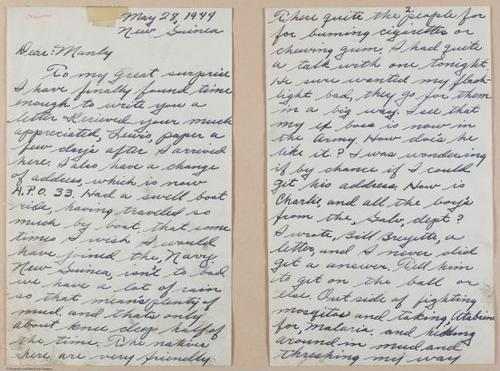 May 28, 1944
New Guinea
Dear: Manly
To my great surprise
I have finally found time
enough to write you a
letter. Recived your much
appreciated, Lewis, paper a
few days after I arrived
here. I also have a change
of address, which is now
A.P.O. 33. Had a swell boat
ride, having traveled so
much by boat, that some
times I wish I would
have joined the, Navy.
New Guinea, isn't to bad
we have a lot of rain
so that means plenty of
mud, and thats only
about knee deep half of
the time. The natives
here are very friendly.
2.
There quite the people for
for buming cigarettes or
chewing gum. I had quite
a talk with one tonight.
He sure wanted my flash
light bad, they go for them
in a big way. I see that
my ex boss is now in
the Army. How dois he
like it? I was wondering
if by chance if I could
get his address. How is
Charlie, and all the boy's
from the, Galv, dept?
I wrote, Bill, a
letter, and I never did
get a answer. Tell him
to get on the ball or
else. Out side of fighting
mosqitas and taking Atabrine
for, Malaria. and hiking
around in mud and
threshing my way